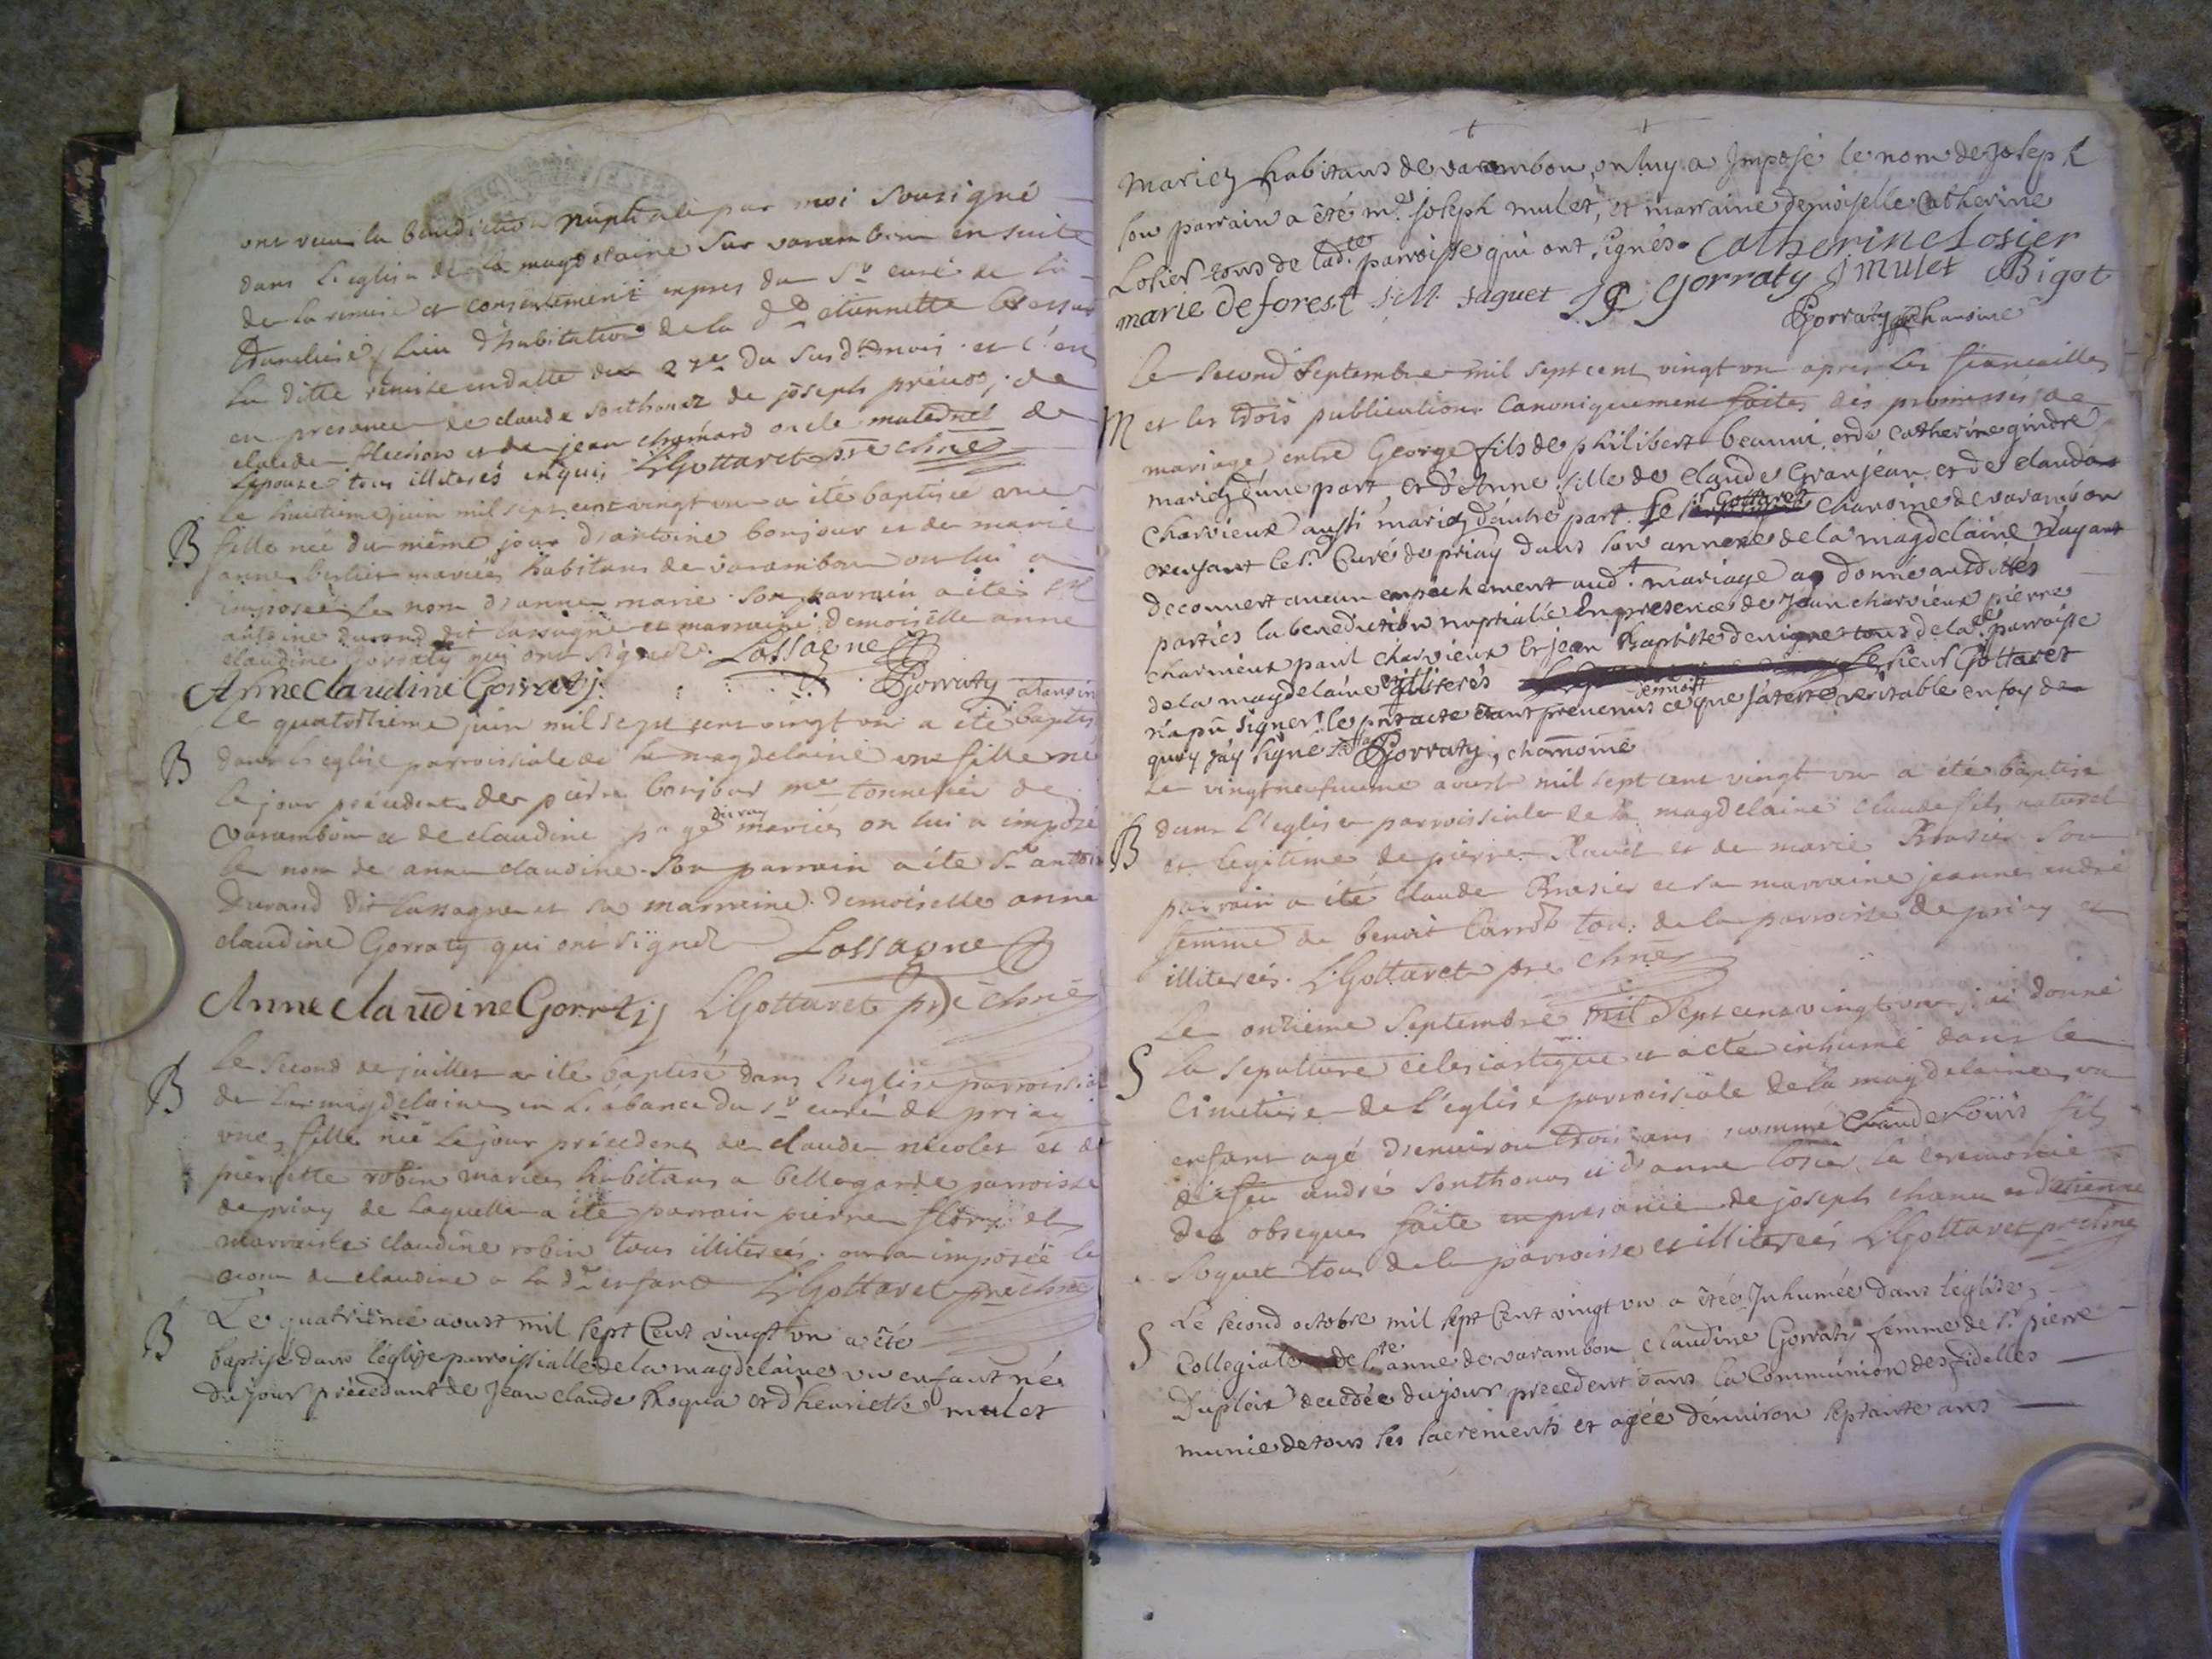 ont receu la benediction nuptiale par moi sousigné
dans l'eglise de la magdelaine sur varambon en suite
de la remise et consentement expres du Sr curé de la
lieu d'habitation de la dte etiennette
la ditte remise en datte du 27e du susdt mois et l'an
en presance de claude sonthonaz de joseph de
claude et de jean chamard oncle maternel de
l'epouze tous illiterés enquis LGottaret pre chne
B
le huitieme juin mil sept cent vingt un a été baptisée une
fille née du même jour d'antoine bonjour et de marie
anne bertier mariés habitans de varambon on lui a
imposée le nom d'anne marie son parrain a été Sr
antoine durand dit lassagne et marraine demoiselle anne
claudine Gorraty qui ont signez. Lassagne
Anne claudine Gorratij Gorraty chanoin
B
le quatorzieme juin mil sept cent vingt un a été baptis
dans l'eglise parroissiale de la magdelaine une fille née
le jour précédent de pierre bonjour me tonnelier de
varambon et de claudine mariés on lui a imposé
le nom de anne claudine. Son parrain a été Sr antoi
Durand dit lassagne et sa marraine demoiselle anne
claudine Gorraty qui ont signez Lassagne
Anne claudine Gorratij LGottaret pre chne
B
le second de juillet a été baptisé dans l'eglise parroissial
de la magdelaine en l'absance du sr curé de priay
une fille née le jour précedent de claude nicolet et de
pierrette robin mariés habitans a bellegarde parroisse
de priay de laquelle a été parrain pierre et
marraine claudine robin tous illiterés. on a imposée le
nom de claudine a la dte enfant LGottaret pre chne
B
Le quatriéme aoust mil sept Cent vingt un a été
baptisé dans l'eglise parroissialle de la magdelaine un enfant né
du jour précedant de Jean claude Roqua et d'henriette mulet
mariez habitans de varambon, on luy a Imposé le nom de joseph
son parrain a été mr joseph mulet, et marraine demoiselle Catherine
Losier tous de ladte parroisse qui ont signés. Catherine Losier
marie deforest saquet Gorraty J mulet Bigot
Gorraty chanoine
M
Le second septembre mil sept cent vingt un apres les fiancailles
et les trois publications Canoniquement faites des promesses de
mariage entre George fils de philibert beauni et de Catherine gindre
mariez d'une part et d'Anne fille de claude Granjean et de claudine
charvieux aussi mariez d'autre part. Le sr Gottaret Chanoine de varambon
excusant le sr Curé de priay dans son annexe de la magdelaine n'ayant
decouvert aucun empechement audt mariage a donné ausdittes
parties la benediction nuptialle En presence de Jean charvieux pierre
charvieux paul charvieux Et jean Baptiste tous de la dte parroisse
de la magdelaine illiterés Le sieur Gottaret
n'a pû signer le prt acte étant prevenus de mort ce que j'atteste veritable en foy de
quoy j'ay signé Gorraty, chanoine
B
Le vingtneufuieme aoust mil sept cent vingt un a été baptisé
dans l'eglise parroissiale de la magdelaine claude fils naturel
et legitime de pierre Ravet et de marie Brasier son
parrain a été claude Brasier et sa marraine jeanne andré
femme de benoit tous de la parroisse de priay et
illiterés. LGottaret pre chne
S
Le onzieme septembre mil sept cent vingt un j'ai donné
la sepulture eclesiastique et a été inhumé dans le
Cimetiere de l'eglise parroissiale de la magdelaine un
enfant agé d'environ trois ans nommé claude Loüis fils
de feu andré sonthonas et d'anne losier la ceremonie
des obseques faite en presance de joseph chanu et d'etienne
soquet tous de la parroisse et illiterés LGottaret pre chne
S
Le second octobre mil sept Cent vingt un a étée Inhumée dans l'eglise
Collegiale de Ste anne de varambon claudine Gorraty femme de sr pierre
Dupleix decedée du jour precedent dans la Communion des fidelles
munie de tous les sacrements et agée d'environ septante ans